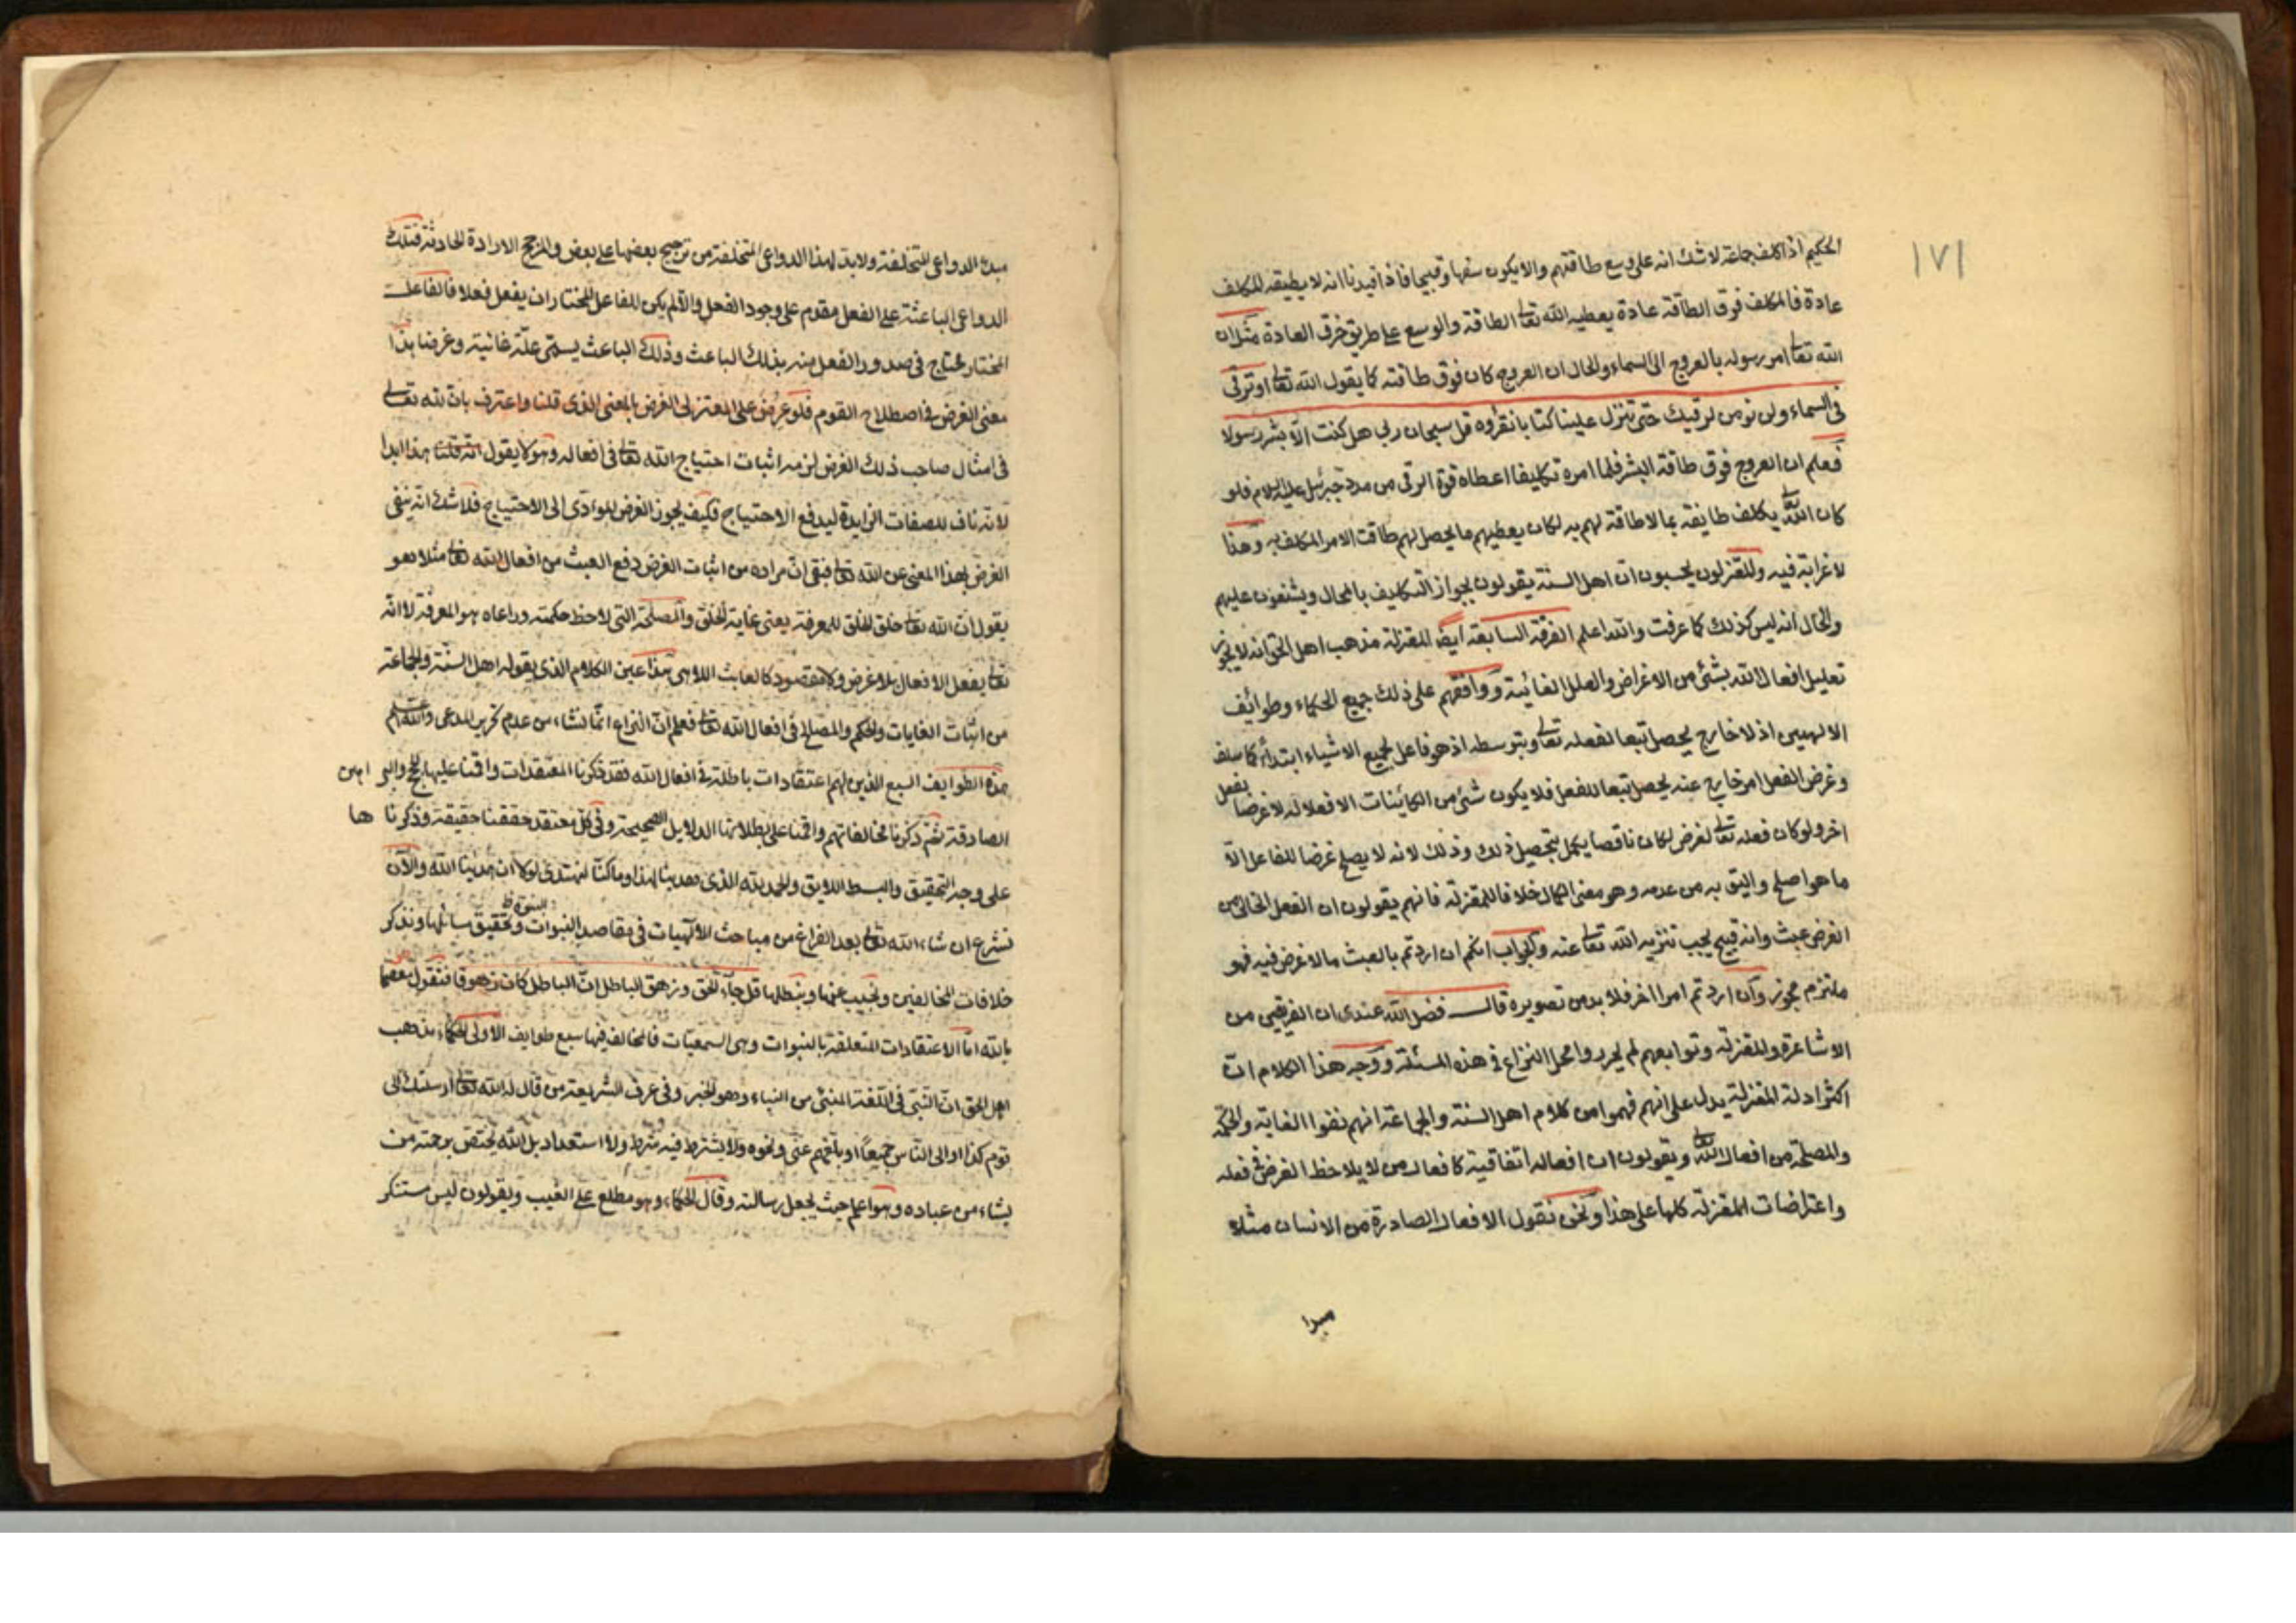 ١٧١
الحكيم اذا كلف جماعة لا شك انه على وسع طاقتهم والا يكون سفها وقبيحا فاذا قيدنا انه لا يطيقه المكلف
عادة فالمكلف فوق الطاقة عادة يعطيه الله تعا الطاقة والوسع على طريق خرق العادة مثلا ان
الله تعا امر رسوله بالعروج الى السماء والحال ان العروج كان فوق طاقته كما يقول الله تعا او ترقى
فى السماء ولن نومن لرقيك حتى تنزل علينا كتابا نقرؤه قل سبحان ربى هل كنت الا بشر رسولا
فعلم ان العروج فوق طاقة البشر فلما امره تكليفا اعطاه قوة الرقى من مدد جبرئيل عليه السلام فلو
كان الله تعا يكلف طايفة بما لا طاقة لهم به لكان يعطيهم ما يحصل لهم طاقت الامر المكلف به وهذا
لا غرابة فيه والمعتزلون يحسبون ان اهل السنة يقولون بجواز التكليف بالمحال ويشنعون عليهم
والحال انه ليس كذلك كما عرفت والله اعلم الفرقة السابعة ايضا المعتزلة مذهب اهل الحق انه لا يجوز
تعليل افعال الله بشئ من الاغراض والعلل الغائية ووافقهم على ذلك جميع الحكماء وطوائف
الالهيين اذ لا خارج يحصل تبعا لفعله تعا وبتوسطه اذ هو فاعل لجميع الاشياء ابتداء كما سلف
وغرض الفعل امر خارج عنه يحصل تبعا للفعل فلا يكون شئ من الكائنات الا فعلا له لا غرضا لفعل
اخر ولو كان فعله تعا لغرض لكان ناقصا يكمل بتحصيل ذلك وذلك لانه لا يصلح غرضا للفاعل الا
ما هو اصلح واليق به من عدمه وهو معنى الكمال خلافا للمعتزلة فانهم يقولون ان الفعل الخالى من
الغرض عبث وانه قبيح يجب تنزيه الله تعا عنه والجواب انكم ان اردتم بالعبث ما لا غرض فيه فهو
ملتزم مجوز وان اردتم امرا اخر فلا بد من تصويره قال فضل الله عندى ان الفريقين من
الاشاعرة والمعتزلة وتوابعهم لم يحرروا محل النزاع فى هذه المسئلة ووجه هذا الكلام ان
اكثر ادلة المعتزلة يدل على انهم فهموا من كلام اهل السنة والجماعة انهم نفوا الغاية والحكمة
والمصلحة من افعال الله تعا ويقولون ان افعاله اتفاقية كافعال من لا يلاحظ الغرض فى فعله
واعتراضات المعتزلة كلها على هذا ونحن نقول الافعال الصادرة من الانسان مثلا
مبدا
مبدا الدواعى المتخلفة ولابد لهذا الدواعى المتخلفة من ترجيح بعضها على بعض والمرجح الارادة الحادثة فتلك
الدواعى الباعثة على الفعل مقدم على وجود الفعل والا لم يكن للفاعل المختار ان يفعل فعلا فالفاعل
المختار يحتاج فى صدور الفعل منه بذلك الباعث وذلك الباعث يسمى علة غائية وغرضا هذا
معنى الغرض فى اصطلاح القوم فلو عرض على المعتزلى الغرض بالمعنى الذى قلنا واعترف بان لله تعالى
فى امثال صاحب ذلك الغرض لزمه اثبات احتياج الله تعا فى افعاله وهو لا يقول هذا ابدا
لانه ناف للصفات الزايدة ليدفع الاحتياج فكيف يجوز الغرض المؤدى الى الاحتياج فلا شك انه ينفى
الغرض بهذا المعنى عن الله تعا فبقى ان مراده من اثبات الغرض دفع العبث من افعال الله تعا مثلا هو
يقول ان الله تعا خلق الخلق للمعرفة يعنى غاية الخلق والمصلحة التى لاحظ حكمته وراعاه هو المعرفة لا انه
تعا يفعل الافعال بلا غرض ولا مقصود كالعابث اللاهى هذا عين الكلام الذى يقوله اهل السنة والجماعة
من اثبات الغايات والحكم والمصالح فى افعال الله تعا فعلم ان النزاع انما نشاء من عدم تحرير المدعى والله اعلم
هذه الطوايف السبع الذين لهم اعتقادات باطلة فى افعال الله فقد ذكرنا المعتقدات واقمنا عليها الحجج والبراهين
الصادقة ثم ذكرنا مخالفاتهم واقمنا على بطلانها الدلايل الصحيحة وفى كل معتقد حققنا حقيقة وذكرناها
على وجه التحقيق والبسط اللايق والحمد لله الذى هدينا لهذا وما كنا لنهتدى لولا ان هدينا الله والآن
نشرع ان شاء الله تعا بعد الفراغ من مباحث الالهيات فى مقاصد النبوات وتحقيق مسائلها ونذكر
خلافات المخالفين ونجيب عنها ونبطلها قل جاء الحق وزهق الباطل ان الباطل كان زهوقا فنقول معتصما
بالله اما الاعتقادات المتعلقة بالنبوات وهى السمعيات فالمخالف فيها سبع طوايف الاولى الحكماء مذهب
اهل الحق ان النبى فى اللغة المنبئ من النباء وهو الخبر وفى عرف الشريعة من قال له الله تعا ارسلتك الى
قوم كذا او الى الناس جميعا او بلغهم عنى ونحوه ولا يشترط فيه شرط ولا استعداد بل الله يختص برحمته من
يشاء من عباده وهو اعلم حيث يجعل رسالته وقال الحكماء وهو مطلع على الغيب ويقولون ليس مستنكر